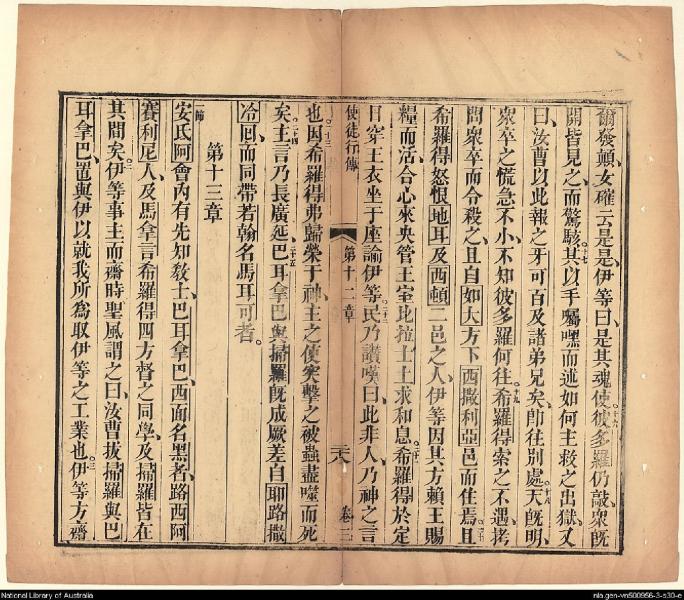 爾發顛、女確云是是、伊等曰、是其魂使。十六彼多羅仍敲、衆既
開皆見之、而驚駭。十七其以手囑嘿而述如何主救之出獄、又
曰、汝曹以此報之牙可百及諸弟兄矣、卽往別處。十八天既明、
衆卒之慌急不小、不知彼多羅何往。十九希羅得索之不遇、拷
問衆卒而令殺之、且自如大方下西撒利亞邑而住焉。二十且
希羅得怒恨地耳及西頓二邑之人、伊等因其方賴王賜
糧而活、合心來央管王室比拉士士求和息。二一希羅得於定
日穿王衣坐于座諭伊等。二二民乃讃嘆曰、此非人、乃神之言
使徒行傳 第十二章 卷三
也。二三因希羅得弗歸榮于神、主之使突擊之、被蟲盡噬而死
矣。二四主言乃長廣延。二五巴耳拿巴與掃羅既成厥差、自耶路撒
冷囘、而同帶若翰名馬耳可者。
第十三章
一節
安氐阿會內有先知敎士、巴耳拿巴、西面名黑者、路西阿
賽利尼人、及馬拿言希羅得四方督之同學、及掃羅皆在
其間矣。二伊等事主而齋時、聖風謂之曰、汝曹拔掃羅與巴
耳拿巴置與伊以就我所爲取伊等之工業也。三伊等方齋
National Library of Australia
nla.gen-vn500956-3-s30-e